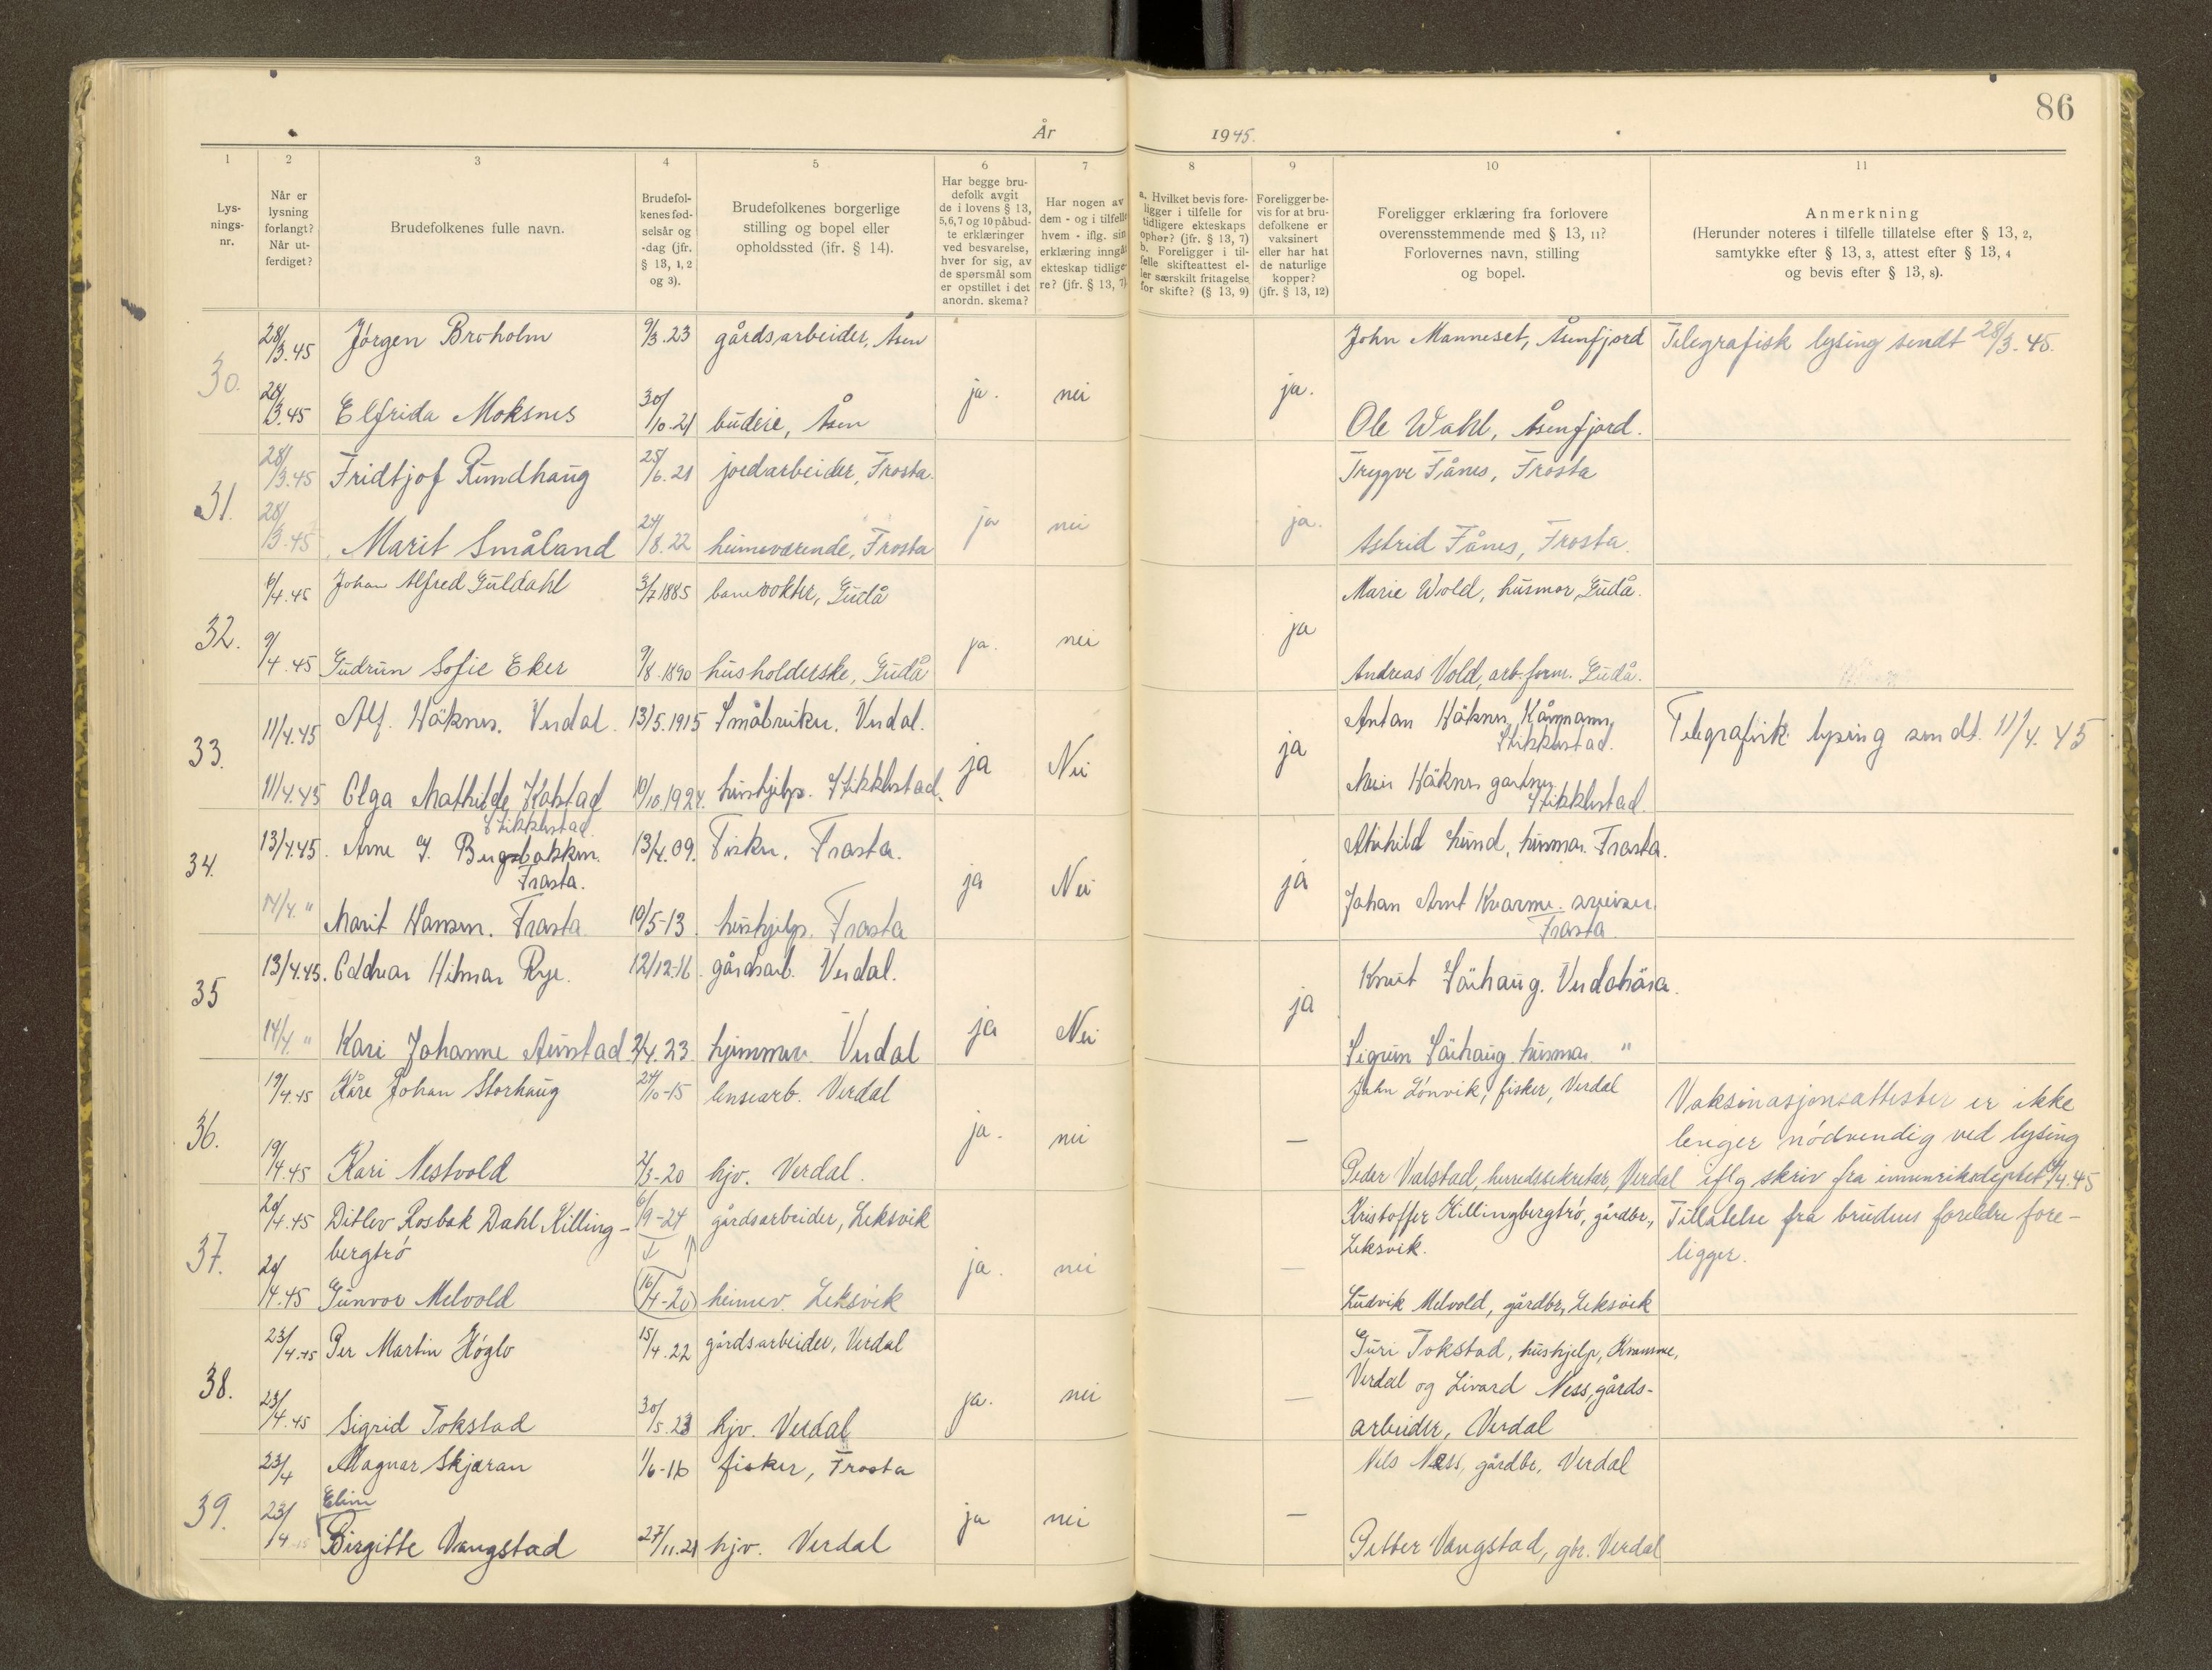 86
År 1945.
1 2 3 4 5 6 7 8 9 10 11
Lys-
nings-
nr.
Når er
lysning
forlangt?
Når ut-
ferdiget?
Brudefolkenes fulle navn.
Brudefol-
kenes fød-
selsår og
-dag (jfr.
§ 13, 1, 2
og 3).
Brudefolkenes borgerlige
stilling og bopel eller
opholdssted (jfr. § 14).
Har begge bru-
defolk avgit
de i lovens § 13,
5, 6, 7 og 10 påbud-
te erklæringer
ved besvarelse,
hver for sig, av
de spørsmål som
er opstillet i det
anordn. skema?
Har nogen av
dem - og i tilfelle
hvem - iflg. sin
erklæring inngått
ekteskap tidlige-
re? (jfr. § 13, 7)
a. Hvilket bevis fore-
ligger i tilfelle for
tidligere ekteskaps
ophør? (jfr. § 13, 7)
b. Foreligger i til-
felle skifteattest el-
ler særskilt fritagelse
for skifte? (§ 13, 9)
Foreligger be-
vis for at bru-
defolkene er
vaksinert
eller har hat
de naturlige
kopper?
(jfr. § 13, 12)
Foreligger erklæring fra forlovere
overensstemmende med § 13, 11?
Forlovernes navn, stilling
og bopel.
Anmerkning
(Herunder noteres i tilfelle tillatelse efter § 13, 2,
samtykke efter § 13, 3, attest efter § 13, 4
og bevis efter § 13, 8).
28/3.45 Jörgen Broholm 9/3.23 gårdsarbeider, Åsen John Manneset, Åsenfjord Telegrafisk lysing sendt 28/3.45.
30. ja. nei ja.
28/3.45 Elfrida Moksnes 30/10.21 budeie, Åsen Ole Wahl, Åsenfjord.
28/3.45 Fridtjof Rundhaug 25/6.21 jordarbeider, Frosta. Trygve Fånes, Frosta
31. ja nei ja.
28/3.45 Marit Småland 24/8.22 heimeværende, Frosta Astrid Fånes, Frosta.
6/4.45 Johan Alfred Guldahl 3/7 1885 banevokter, Gudå Marie Wold, husmor, Gudå.
32. ja. nei ja
9/4.45 Gudrun Sofie Eker 9/8.1890 husholderske, Gudå Andreas Vold, arb.form. Gudå.
11/4.45 Alf. Håknes. Verdal. 13/5.1915 Småbruker. Verdal. Anton Håknes, Kårmann,
Stikklestad. Telegrafisk lysing sendt. 11/4.45
33. ja Nei ja
11/4.45 Olga Mathilde Kolstad
Stikklestad. 10/10.1924. hushjelp. Stikklestad. Håknes gartner
Stikklestad.
13/4.45. Arne J. Bergsbakken.
Frosta. 13/4.09. Fisker. Frosta. husmor. Frosta.
34. ja Nei ja
14/4. " Marit Hansen. Frosta 10/5-13. hushjelp. Frosta Johan Arnt Kvarme.
Frosta.
13/4.45. Oddvar Hilmar Rye. 12/12-16. gårdsarb. Verdal. Knut Söihaug. Verdalsöra.
35 ja Nei ja
14/4. " Kari Johanne Austad 2/4.23 hjemmev. Verdal Sigrun Söihaug. husmor. "
19/4.45 Kåre Johan Storhaug 24/10-15 lensearb. Verdal John Lönvik, fisker, Verdal Vaksinasjonsattester er ikke
36. ja. nei — lenger nödvendig ved lysing
19/4.45 Kari Nestvold 2/3-20 hjv. Verdal. Peder Valstad, herredssekretær, Verdal iflg skriv fra innenriksdeptet 9/4.45
20/4.45 Ditlev Rosbak Dahl Killing-
bergtrö 6/9-24 gårdsarbeider, Leksvik Kristoffer Killingbergtrö, gårdbr.,
Leksvik. Tillatelse fra brudens foreldre fore-
ligger.
37. ja. nei —
20/4.45 Gunvor Melvold 16/4-20 heimev. Leksvik Ludvik Melvold, gårdbr, Leksvik
23/4.45 Per Martin Höglo 15/4.22 gårdsarbeider, Verdal Guri Tokstad, hushjelp,
Verdal og Livard Ness, gårds-
arbeider, Verdal
38. ja. nei —
23/4.45 Sigrid Tokstad 30/5.23 hjv. Verdal
23/4 Magnar Skjæran 1/6-16 fisker, Frosta Nils Ness, gårdbr, Verdal
39. ja nei —
Elin
23/4.45 Birgitte Vangstad 27/11.21 hjv. Verdal Petter Vangstad, gbr. Verdal